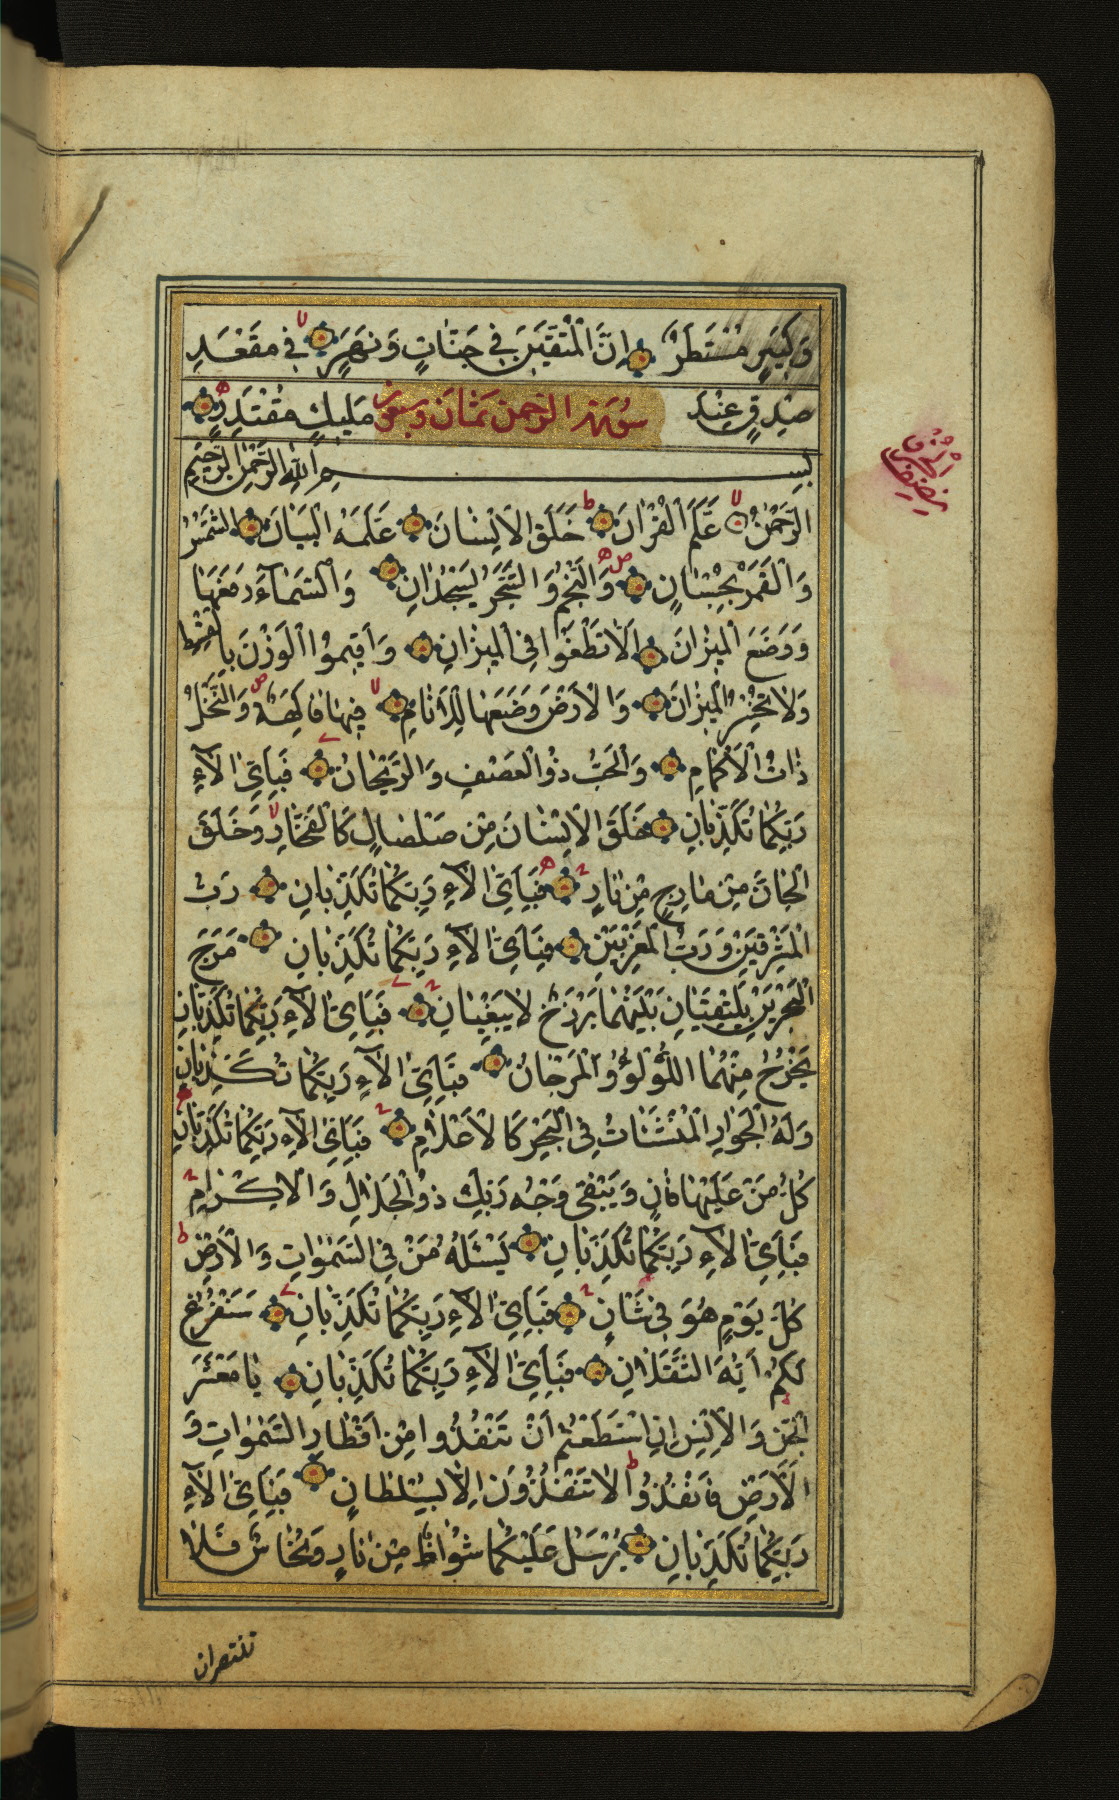 وَكَبِيرٍ مُسْتَطَرٌ اِنَّ الْمُتَّقِينَ فِي جَنَّاتٍ وَنَهَرٍ فِي مَقْعَدِ
صِدْقٍ عِنْدَ سورة الرحمن ثمان وسبعون مَلِيكٍ مُقْتَدِرٍ
بِسْمِ اللهِ الرَّحْمٰنِ الرَّحِيمِ
الرَّحْمٰنُ عَلَّمَ الْقُرْاٰنَ خَلَقَ الْاِنْسٰانَ عَلَّمَهُ الْبَيٰانَ الشَّمْسُ
وَالْقَمَرُ بِحُسْبٰانٍ وَالنَّجْمُ وَالشَّجَرُ يَسْجُدٰانِ وَالسَّمٰاءَ رَفَعَهٰا
وَوَضَعَ الْمِيزٰانَ اَلّٰا تَطْغَوْا فِي الْمِيزٰانِ وَاَقِيمُوا الْوَزْنَ بِالْقِسْطِ
وَلٰا تُخْسِرُوا الْمِيزٰانَ وَالْاَرْضَ وَضَعَهٰا لِلْاَنٰامِ فِيهٰا فٰاكِهَةٌ وَالنَّخْلُ
ذٰاتُ الْاَكْمٰامِ وَالْحَبُّ ذُو الْعَصْفِ وَالرَّيْحٰانُ فَبِاَيِّ اٰلٰاءِ
رَبِّكُمٰا تُكَذِّبٰانِ خَلَقَ الْاِنْسٰانَ مِنْ صَلْصٰالٍ كَالْفَخّٰارِ وَخَلَقَ
الْجٰانَّ مِنْ مٰارِجٍ مِنْ نٰارٍ فَبِاَيِّ اٰلٰاءِ رَبِّكُمٰا تُكَذِّبٰانِ رَبُّ
الْمَشْرِقَيْنِ وَرَبُّ الْمَغْرِبَيْنِ فَبِاَيِّ اٰلٰاءِ رَبِّكُمٰا تُكَذِّبٰانِ مَرَجَ
الْبَحْرَيْنِ يَلْتَقِيٰانِ بَيْنَهُمٰا بَرْزَخٌ لٰا يَبْغِيٰانِ فَبِاَيِّ اٰلٰاءِ رَبِّكُمٰا تُكَذِّبٰانِ
يَخْرُجُ مِنْهُمَا اللُّؤْلُؤُ وَالْمَرْجٰانُ فَبِاَيِّ اٰلٰاءِ رَبِّكُمٰا تُكَذِّبٰانِ
وَلَهُ الْجَوٰارِ الْمُنْشَئٰاتُ فِي الْبَحْرِ كَالْاَعْلٰامِ فَبِاَيِّ اٰلٰاءِ رَبِّكُمٰا تُكَذِّبٰانِ
كُلُّ مَنْ عَلَيْهٰا فٰانٍ وَيَبْقٰى وَجْهُ رَبِّكَ ذُو الْجَلٰالِ وَالْاِكْرٰامِ
فَبِاَيِّ اٰلٰاءِ رَبِّكُمٰا تُكَذِّبٰانِ يَسْئَلُهُ مَنْ فِي السَّمٰوٰاتِ وَالْاَرْضِ
كُلَّ يَوْمٍ هُوَ فِي شَاْنٍ فَبِاَيِّ اٰلٰاءِ رَبِّكُمٰا تُكَذِّبٰانِ سَنَفْرُغُ
لَكُمْ اَيُّهَ الثَّقَلٰانِ فَبِاَيِّ اٰلٰاءِ رَبِّكُمٰا تُكَذِّبٰانِ يٰا مَعْشَرَ
الْجِنِّ وَالْاِنْسِ اِنِ اسْتَطَعْتُمْ اَنْ تَنْفُذُوا مِنْ اَقْطٰارِ السَّمٰوٰاتِ وَ
الْاَرْضِ فَانْفُذُوا لٰا تَنْفُذُونَ اِلّٰا بِسُلْطٰانٍ فَبِاَيِّ اٰلٰاءِ
رَبِّكُمٰا تُكَذِّبٰانِ يُرْسَلُ عَلَيْكُمٰا شُوٰاظٌ مِنْ نٰارٍ وَنُحٰاسٌ فَلٰا
تنتصران